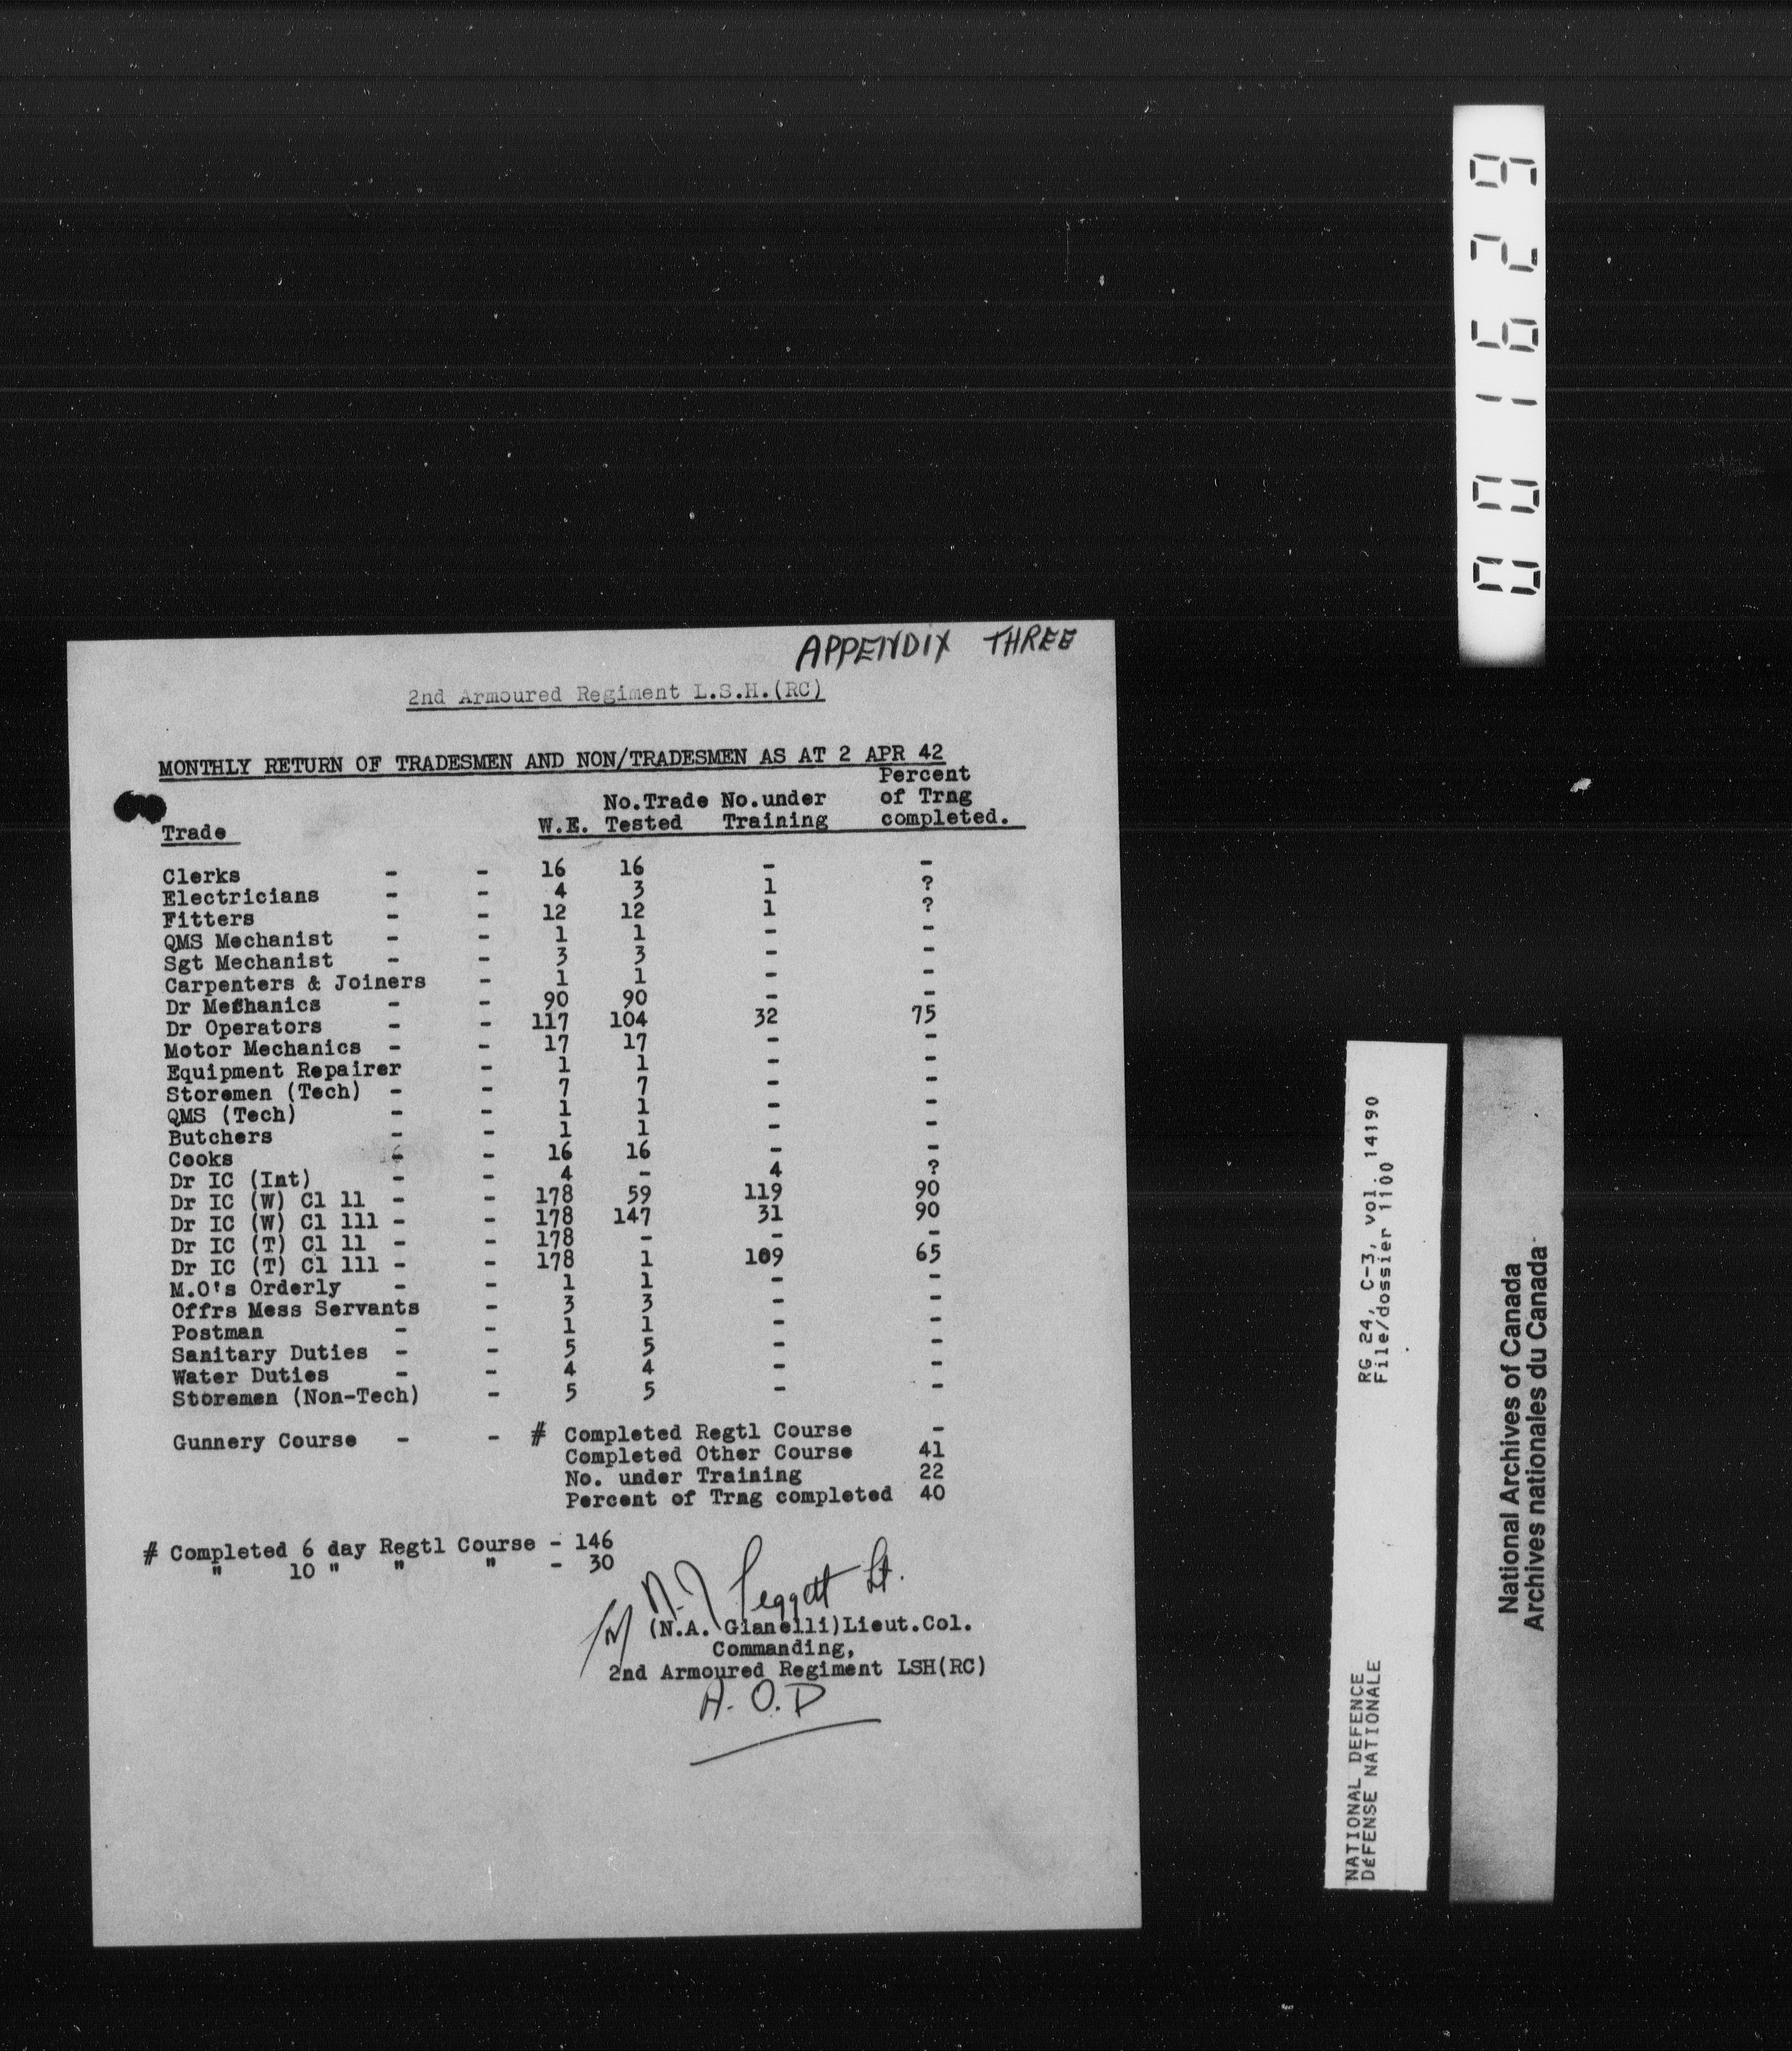 APPENDIX THREE
2nd Armoured Regiment L.S.H.(RC)
MONTHLY RETURN OF TRADESMEN AND NON/TRADESMEN AS AT 2 APR 42
Percent
No.Trade No.under of Trng
Trade W.E. Tested Training completed.
Clerks - - 16 16 - -
Electricians - - 4 3 1 ?
Fitters - - 12 12 1 ?
QMS Mechanist - - 1 1 - -
Sgt Mechanist - - 3 3 - -
Carpenters & Joiners - 1 1 - -
Dr Mechanics - - 90 90 - -
Dr Operators - - 117 104 32 75
Motor Mechanics - - 17 17 - -
Equipment Repairer - 1 1 - -
Storemen (Tech) - - 7 7 - -
QMS (Tech) - - 1 1 - -
Butchers - - 1 1 - -
Cooks - - 16 16 - -
Dr IC (Int) - - 4 - 4 ?
Dr IC (W) Cl 11 - - 178 59 119 90
Dr IC (W) Cl 111 - - 178 147 31 90
Dr IC (T) Cl 11 - - 178 - - -
Dr IC (T) Cl 111 - - 178 1 109 65
M.O's Orderly - - 1 1 - -
Offrs Mess Servants - 3 3 - -
Postman - - 1 1 - -
Sanitary Duties - - 5 5 - -
Water Duties - - 4 4 - -
Storemen (Non-Tech) - 5 5 - -
Gunnery Course - - # Completed Regtl Course -
Completed Other Course 41
No. under Training 22
Percent of Trng completed 40
# Completed 6 day Regtl Course - 146
" 10 " " " - 30
Lt.
(N.A. Gianelli)Lieut.Col.
Commanding,
2nd Armoured Regiment LSH(RC)
A.O.D
001629
RG 24, C-3, vol. 14190
File/dossier 1100
NATIONAL DEFENCE
DÉFENSE NATIONALE
National Archives of Canada
Archives nationales du Canada